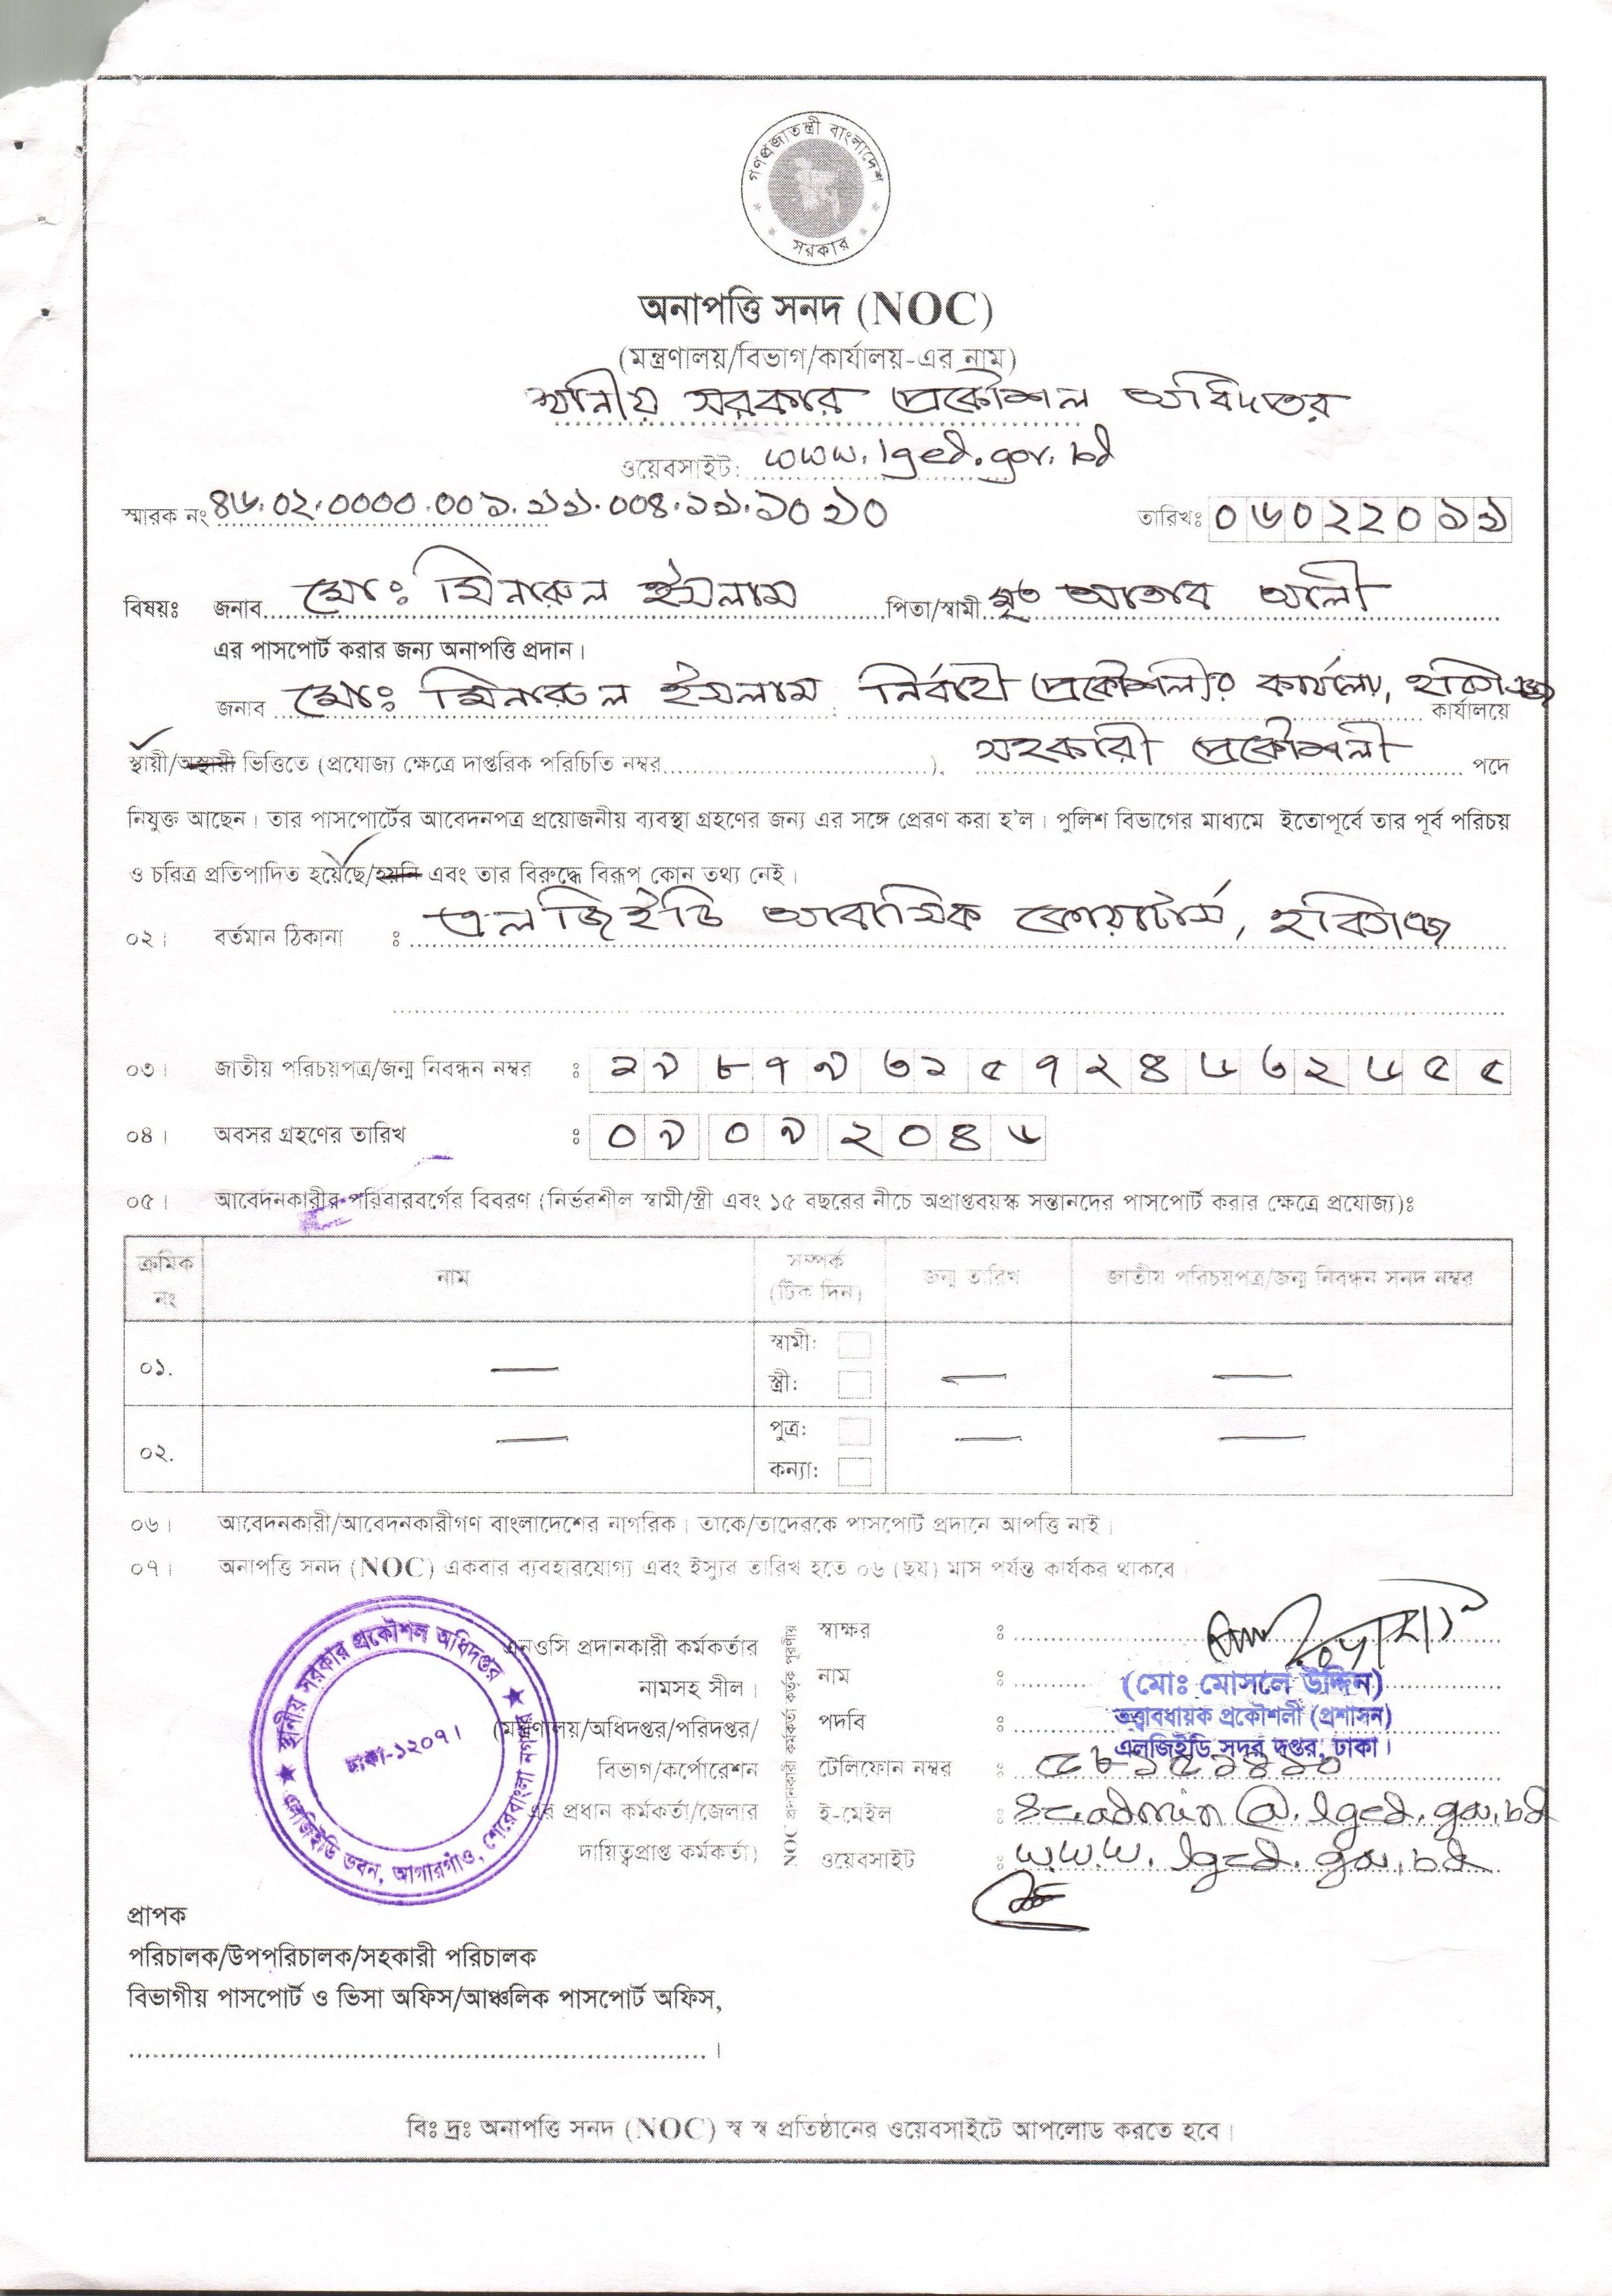 গণপ্রজাতন্ত্রী বাংলাদেশ
সরকার
অনাপত্তি সনদ (NOC)
(মন্ত্রণালয়/বিভাগ/কার্যালয়-এর নাম)
স্থানীয় সরকার প্রকৌশল অধিদপ্তর
ওয়েবসাইট: www.lged.gov.bd
স্মারক নং ৪৬.০২.০০০০.০০১.১১.০০৪.১১.
তারিখঃ ০৬০২২০১১
বিষয়ঃ জনাব মোঃ মিনারুল ইসলাম পিতা/স্বামী মৃত আতাব আলী
এর পাসপোর্ট করার জন্য অনাপত্তি প্রদান।
জনাব মোঃ মিনারুল ইসলাম নির্বাহী প্রকৌশলীর কার্যালয়, হবিগঞ্জ কার্যালয়ে
স্থায়ী/অস্থায়ী ভিত্তিতে (প্রযোজ্য ক্ষেত্রে দাপ্তরিক পরিচিতি নম্বর ), সহকারী প্রকৌশলী পদে
নিযুক্ত আছেন। তার পাসপোর্টের আবেদনপত্র প্রয়োজনীয় ব্যবস্থা গ্রহণের জন্য এর সঙ্গে প্রেরণ করা হ'ল। পুলিশ বিভাগের মাধ্যমে ইতোপূর্বে তার পূর্ব পরিচয়
ও চরিত্র প্রতিপাদিত হয়েছে/হয়নি এবং তার বিরুদ্ধে বিরূপ কোন তথ্য নেই।
০২। বর্তমান ঠিকানা : এলজিইডি আবাসিক কোয়ার্টার্স, হবিগঞ্জ
০৩। জাতীয় পরিচয়পত্র/জন্ম নিবন্ধন নম্বর : ১৯৮৭৯৩১৫৭২৪৬৩২৬৫৫
০৪। অবসর গ্রহণের তারিখ : ০৯ ০৯ ২০৪৬
০৫। আবেদনকারীর পরিবারবর্গের বিবরণ (নির্ভরশীল স্বামী/স্ত্রী এবং ১৫ বছরের নীচে অপ্রাপ্তবয়স্ক সন্তানদের পাসপোর্ট করার ক্ষেত্রে প্রযোজ্য)ঃ
ক্রমিক নং নাম সম্পর্ক (টিক দিন) জন্ম তারিখ জাতীয় পরিচয়পত্র/জন্ম নিবন্ধন সনদ নম্বর
০১. — স্বামী: — —
স্ত্রী:
০২. — পুত্র: — —
কন্যা:
০৬। আবেদনকারী/আবেদনকারীগণ বাংলাদেশের নাগরিক। তাকে/তাদেরকে পাসপোর্ট প্রদানে আপত্তি নাই।
০৭। অনাপত্তি সনদ (NOC) একবার ব্যবহারযোগ্য এবং ইস্যুর তারিখ হতে ০৬ (ছয়) মাস পর্যন্ত কার্যকর থাকবে।
স্থানীয় সরকার প্রকৌশল অধিদপ্তর
ঢাকা-১২০৭।
এলজিইডি ভবন, আগারগাঁও, শেরেবাংলা নগর
এনওসি প্রদানকারী কর্মকর্তার
নামসহ সীল।
(মন্ত্রণালয়/অধিদপ্তর/পরিদপ্তর/
বিভাগ/কর্পোরেশন
এর প্রধান কর্মকর্তা/জেলার
দায়িত্বপ্রাপ্ত কর্মকর্তা)
NOC প্রদানকারী কর্মকর্তা কর্তৃক পূরণীয়
স্বাক্ষর :
নাম : (মোঃ মোসলে উদ্দিন)
পদবি : তত্ত্বাবধায়ক প্রকৌশলী (প্রশাসন)
এলজিইডি সদর দপ্তর, ঢাকা।
টেলিফোন নম্বর :
ই-মেইল : se.admin@.lged.gov.bd
ওয়েবসাইট : www.lged.gov.bd
প্রাপক
পরিচালক/উপপরিচালক/সহকারী পরিচালক
বিভাগীয় পাসপোর্ট ও ভিসা অফিস/আঞ্চলিক পাসপোর্ট অফিস,
বিঃ দ্রঃ অনাপত্তি সনদ (NOC) স্ব স্ব প্রতিষ্ঠানের ওয়েবসাইটে আপলোড করতে হবে।